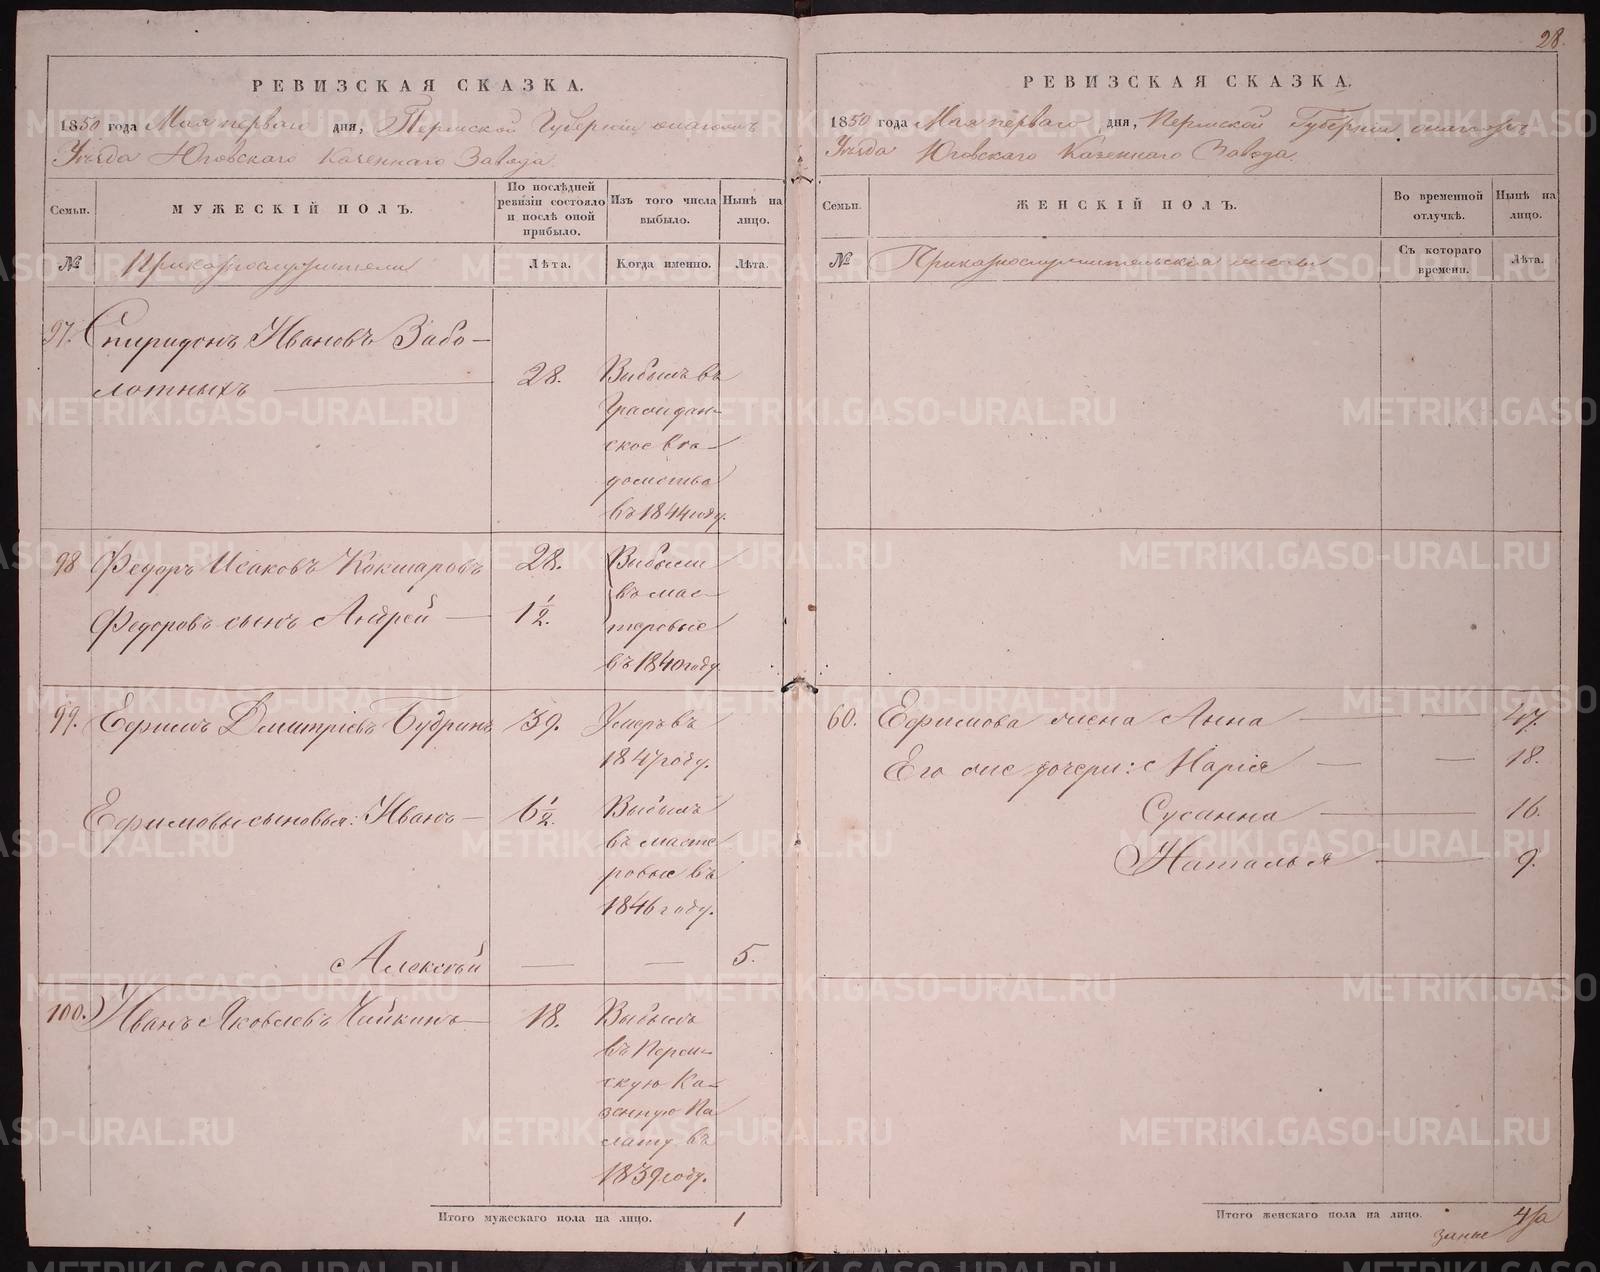 РЕВИЗСКАЯ СКАЗКА.
1850 года Мая перваго дня, Пермской Губерніи
Уѣзда Юговскаго Казеннаго Завода.
Семьи.
МУЖЕСКІЙ ПОЛЪ.
По послѣдней ревизіи состояло и послѣ оной прибыло.
Изъ того числа выбыло.
Нынѣ на лицо.
№
Приказнослужители
Лѣта.
Когда именно.
Лѣта.
97. Спиридонъ Ивановъ Забо-
лотныхъ 28. Выбылъ въ
Граждан-
ское вѣ-
домство
въ 1844 году.
98 Федоръ Исаковъ Кокшаровъ 28. Выбыли
въ мас-
Федоровъ сынъ Андрей 1 1/2. теровые
въ 1840 году.
99. Ефимъ Дмитріевъ Бубринъ 39. Умеръ въ
1847 году.
Ефимовы сыновья: Иванъ 6 1/2. Выбылъ
въ масте
ровые въ
1846 году.
Алексѣй 5.
100. Иванъ Яковлевъ Чайкинъ 18. Выбылъ
въ Перм-
скую Ка-
зенную Па
лату въ
1839 году.
Итого мужескаго пола на лицо. 1
28.
РЕВИЗСКАЯ СКАЗКА.
1850 года Мая перваго дня, Пермской Губерніи
Уѣзда Юговскаго Казеннаго Завода.
Семьи.
ЖЕНСКІЙ ПОЛЪ.
Во временной отлучкѣ.
Нынѣ на лицо.
№
Приказнослужительскія жены
Съ котораго времени.
Лѣта.
60. Ефимова жена Анна 47.
Его же дочери: Марія 18.
Сусанна 16.
Наталья 9.
Итого женскаго пола на лицо. 4
METRIKI.GASO-URAL.RU